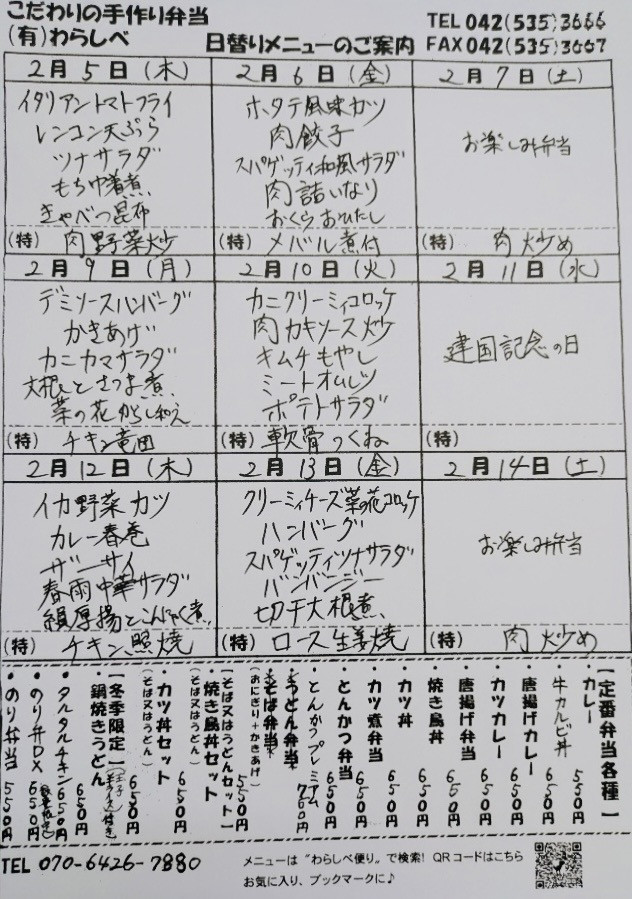 こだわりの手作り弁当
(有)わらしべ
日替りメニューのご案内
TEL 042(535)3666
FAX 042(535)3667
2月5日(木)
イタリアントマトフライ
レンコン天ぷら
ツナサラダ
もち巾着煮
きゃべつ昆布
(特) 肉野菜炒
2月6日(金)
ホタテ風味カツ
肉餃子
スパゲッティ和風サラダ
肉詰いなり
おくらおひたし
(特) メバル煮付
2月7日(土)
お楽しみ弁当
(特) 肉炒め
2月9日(月)
デミソースハンバーグ
かきあげ
カニカマサラダ
大根とさつま煮
菜の花からし和え
(特) チキン竜田
2月10日(火)
カニクリーミィコロッケ
肉カキソース炒
キムチもやし
ミートオムレツ
ポテトサラダ
(特) 軟骨つくね
2月11日(水)
建国記念の日
(特)
2月12日(木)
イカ野菜カツ
カレー春巻
ザーサイ
春雨中華サラダ
絹厚揚とこんにゃく煮
(特) チキン照焼
2月13日(金)
クリーミィチーズ菜の花コロッケ
ハンバーグ
スパゲッティツナサラダ
バンバンジー
切干大根煮
(特) ロース生姜焼
2月14日(土)
お楽しみ弁当
(特) 肉炒め
【定番弁当各種】
・カレー 550円
・牛カルビ丼 650円
・唐揚げカレー 650円
・カツカレー 650円
・唐揚げ弁当 650円
・焼き鳥丼 650円
・カツ丼 650円
・カツ煮弁当 650円
・とんかつ弁当 650円
・とんかつプレミアム 750円
・うどん弁当*
・そば弁当*
(おにぎり+かきあげ) 550円
【そば又はうどんセット】
・焼き鳥丼セット
(そば又はうどん) 650円
・カツ丼セット
(そば又はうどん) 650円
【冬季限定】
・鍋焼きうどん 650円
・タルタルチキン 650円
・のり弁DX 650円
・のり弁当 550円
TEL 070-6426-7880
メニューは“わらしべ便り”で検索! QRコードはこちら
お気に入り、ブックマークに♪